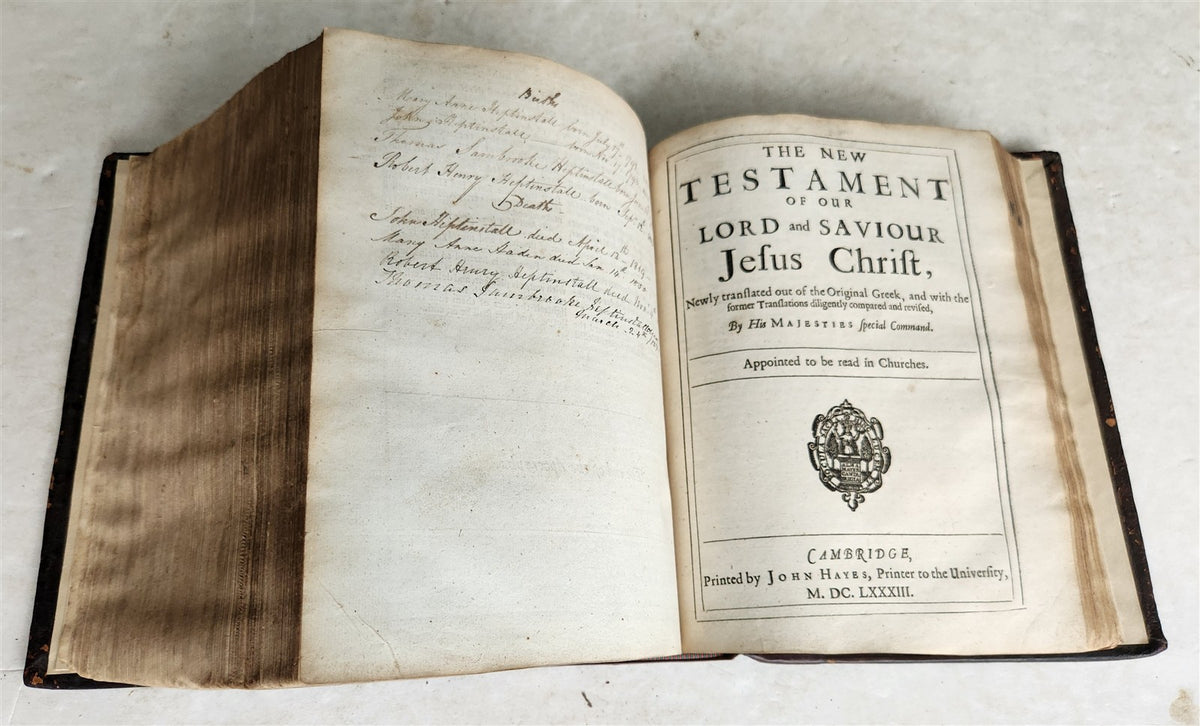 Births
Mary Anne Heptinstall born July
Johnny Heptinstall born
Thomas Sambrooke Heptinstall born
Robert Henry Heptinstall born Sept
Deaths
John Heptinstall died April 12th 1819
Mary Anne Haden died Jan 14th
Robert Henry Heptinstall died
Thomas Sambrooke Heptinstall
March 24th
THE NEW
TESTAMENT
OF OUR
LORD and SAVIOUR
Jeſus Chriſt,
Newly tranſlated out of the Original Greek, and with the
former Tranſlations diligently compared and reviſed,
By His MAJESTIES ſpecial Command.
Appointed to be read in Churches.
CAMBRIDGE,
Printed by JOHN HAYES, Printer to the Univerſity,
M. DC. LXXXIII.